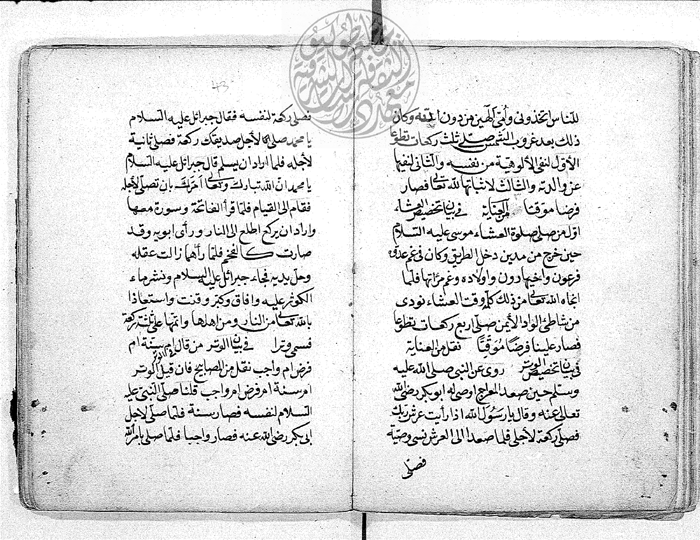 للناس اتخذونى وأمى آلهين من دون الله وكان
ذلك بعد غروب الشمس صلى ثلث ركعات تطوعا
الأول لنفى الألوهية من نفسه والثانى لنفيها
عن والدته والثالث لاثباتها لله تعالى فصار
فرضا موقتا من العناية فى بيان تخصيص العشاء
اول من صلى صلوة العشاء موسى عليه السلام
حين خرج من مدين دخل الطريق وكان فى غم عدوه
فرعون واخيه هارون واولاده وغم مرأتها فلما
انجاه الله تعالى من ذلك كله وقت العشاء نودى
من شاطئ الواد الأيمن صلى اربع ركعات تطوعا
فصار علينا فرضا موقتا نقل من العناية
فى بيان تخصيص الوتر روى عن النبى صلى الله عليه
وسلم حين صعد المعراج اوصى له ابو بكر رضى الله
تعالى عنه وقال يا رسول الله اذا رأيت عرش ربك
فصلى ركعة لأجلى فلما صعد الى العرش نسى وصية
فصلى
فصلى ركعة لنفسه فقال جبرائل عليه السلام
يا محمد صلى لأجل صديقك ركعة فصلى ثانية
لأجله فلما اراد ان يسلم قال جبرائل عليه السلام
يا محمد ان الله تبارك وتعالى أمرك بان تصلى لأجله
فقام الى القيام فلما قرأ الفاتحة وسورة معها
واراد ان يركع اطلع الى النار ورأى ابويه وقد
صارت كالفحم فلما رأهما زالت عقله
وحل يديه فجاء جبرائل عليه السلام ونشر ماء
الكوثر عليه وافاق وكبر وقنت واستعاذ
بالله تعالى من النار ومن اهلها واتمها على ثلث ركعة
فسمى وترا فى بيان الوتر من قال أم سنة ام
فرض ام واجب نقل من المصابيح فان قيل الوتر
ام سنة ام فرض ام واجب قلنا صلى النبى عليه
السلام لنفسه فصار سنة فلما صلى لأجل
ابى بكر رضى الله عنه فصار واجبا فلما صلى بامر الله